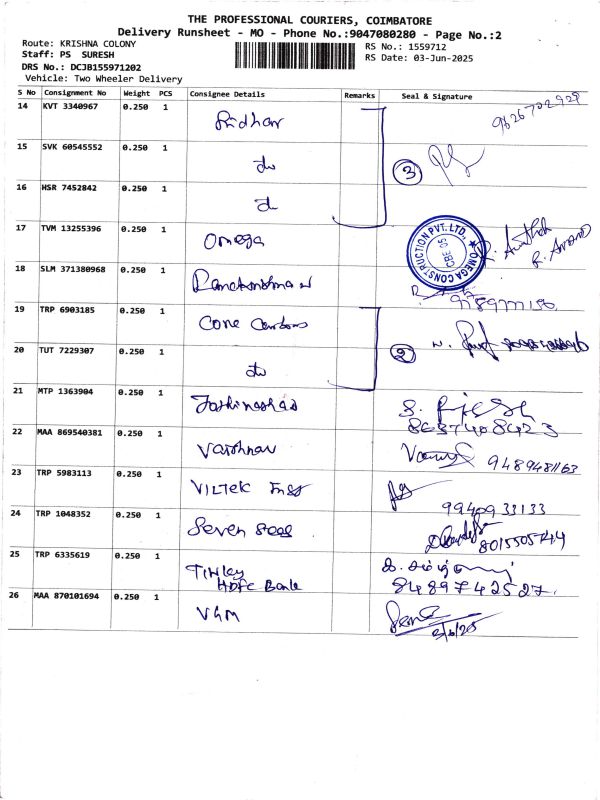 THE PROFESSIONAL COURIERS, COIMBATORE
Delivery Runsheet - MO - Phone No.:9047080280 - Page No.:2
Route: KRISHNA COLONY
RS No.: 1559712
Staff: PS SURESH
RS Date: 03-Jun-2025
DRS No.: DCJB155971202
Vehicle: Two Wheeler Delivery
S No Consignment No Weight PCS Consignee Details Remarks Seal & Signature
14 KVT 3340967 0.250 1 Sridhar 9626702929
15 SVK 60545552 0.250 1 do 3
16 HSR 7452842 0.250 1 do
17 TVM 13255396 0.250 1 Omega
OMEGA CONSTRUCTION PVT. LTD.,
CBE 05
18 SLM 371380968 0.250 1
19 TRP 6903185 0.250 1 Cone
20 TUT 7229307 0.250 1 do 2
21 MTP 1363904 0.250 1
8637408423
22 MAA 869540381 0.250 1 Vaishnav 9489481163
23 TRP 5983113 0.250 1 VILTEK Inst
9940933133
24 TRP 1048352 0.250 1 Seven
25 TRP 6335619 0.250 1
HDFC Bank
8489742527
26 MAA 870101694 0.250 1 VGM
3/6/25